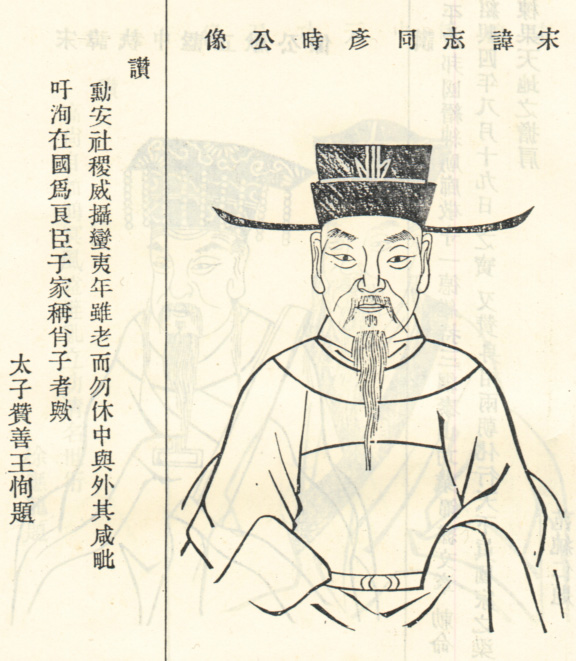 宋諱志同彥時公像
讚
勳安社稷威攝蠻夷年雖老而勿休中與外其咸毗
吁洵在國爲良臣于家稱肖子者歟
太子贊善王恂題